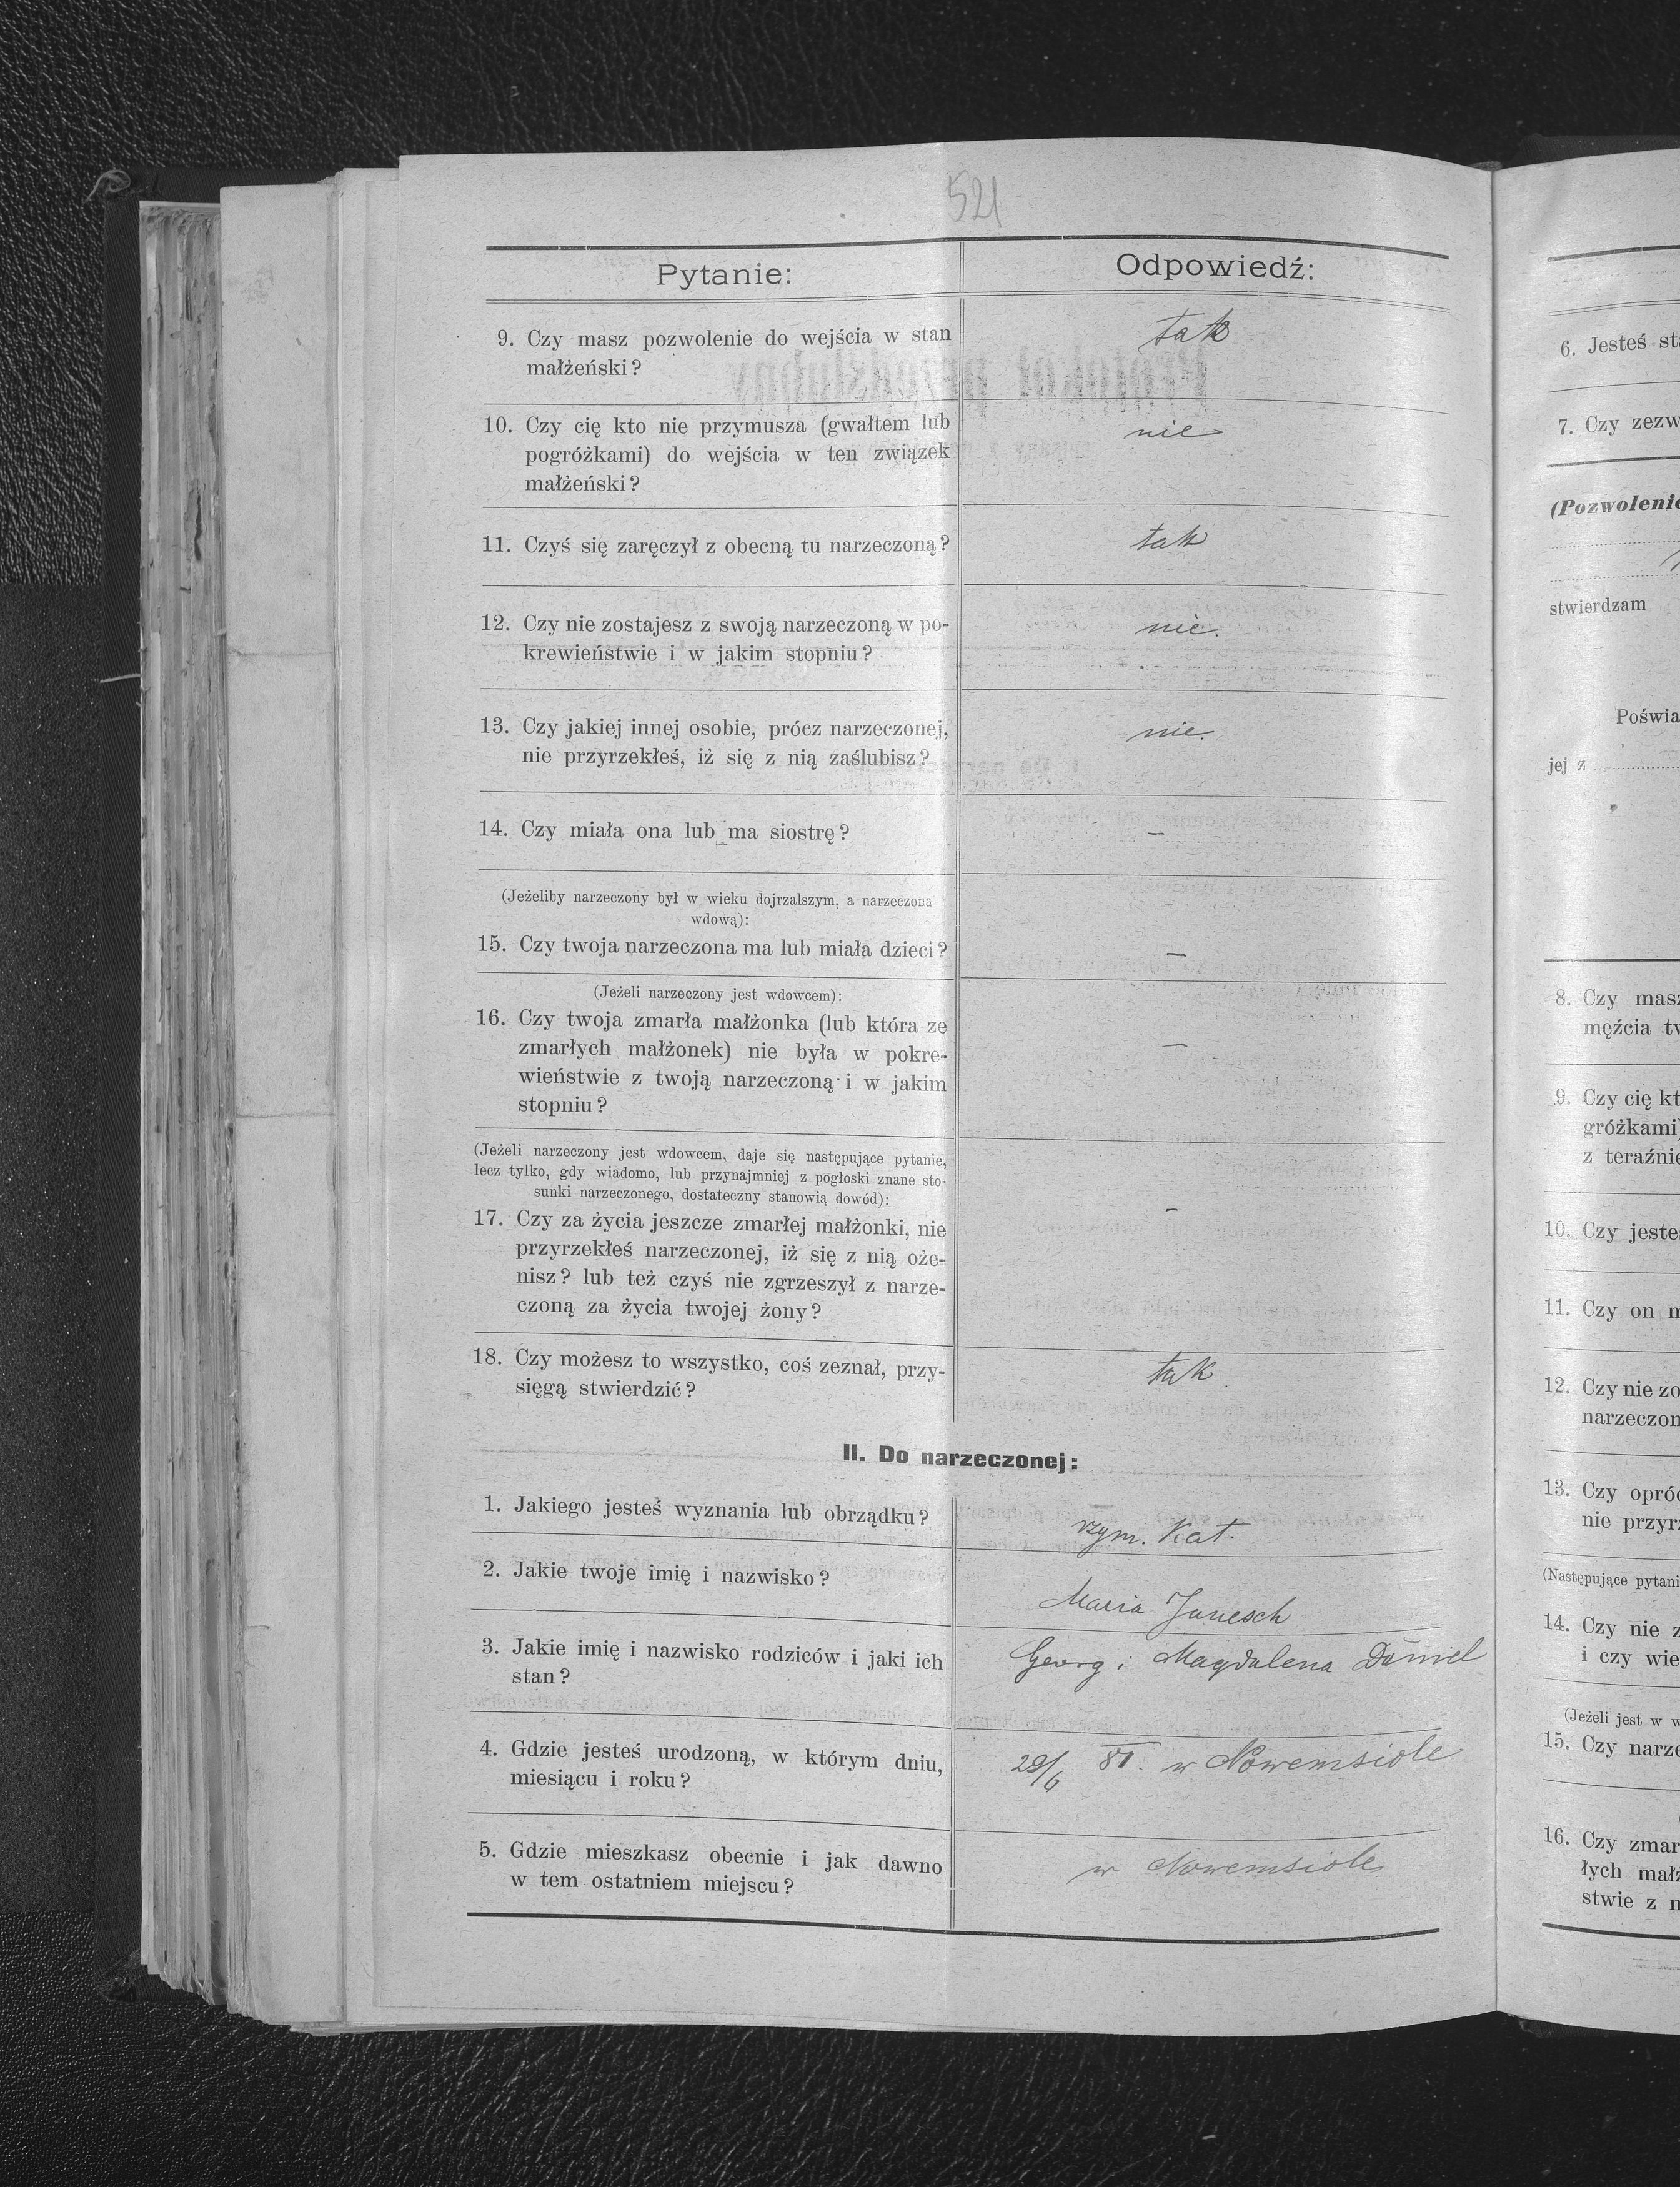 521
Pytanie:
Odpowiedź:
9. Czy masz pozwolenie do wejścia w stan
małżeński?
tak
10. Czy cię kto nie przymusza (gwałtem lub
pogróżkami) do wejścia w ten związek
małżeński?
nie
11. Czyś się zaręczył z obecną tu narzeczoną?
tak
12. Czy nie zostajesz z swoją narzeczoną w po-
krewieństwie i w jakim stopniu?
nie.
13. Czy jakiej innej osobie, prócz narzeczonej,
nie przyrzekłeś, iż się z nią zaślubisz?
nie.
14. Czy miała ona lub ma siostrę?
—
(Jeżeliby narzeczony był w wieku dojrzalszym, a narzeczona
wdową):
15. Czy twoja narzeczona ma lub miała dzieci?
—
(Jeżeli narzeczony jest wdowcem):
16. Czy twoja zmarła małżonka (lub która ze
zmarłych małżonek) nie była w pokre-
wieństwie z twoją narzeczoną i w jakim
stopniu?
—
(Jeżeli narzeczony jest wdowcem, daje się następujące pytanie,
lecz tylko, gdy wiadomo, lub przynajmniej z pogłoski znane sto-
sunki narzeczonego, dostateczny stanowią dowód):
17. Czy za życia jeszcze zmarłej małżonki, nie
przyrzekłeś narzeczonej, iż się z nią oże-
nisz? lub też czyś nie zgrzeszył z narze-
czoną za życia twojej żony?
—
18. Czy możesz to wszystko, coś zeznał, przy-
sięgą stwierdzić?
tak.
II. Do narzeczonej:
1. Jakiego jesteś wyznania lub obrządku?
rzym. Kat.
2. Jakie twoje imię i nazwisko?
Maria Janesch
3. Jakie imię i nazwisko rodziców i jaki ich
stan?
Georg i Magdalena Daniel
4. Gdzie jesteś urodzoną, w którym dniu,
miesiącu i roku?
29/6 81. w Nowemsiole
5. Gdzie mieszkasz obecnie i jak dawno
w tem ostatniem miejscu?
w Nowemsiole
6. Jesteś st
7. Czy zezw
(Pozwolenie
stwierdzam
Poświa
jej z
8. Czy masz
męźcia tw
9. Czy cię kt
gróżkami
z teraźnie
10. Czy jeste
11. Czy on m
12. Czy nie zo
narzeczon
13. Czy opróc
nie przyrz
(Następujące pytani
14. Czy nie z
i czy wie
(Jeżeli jest w w
15. Czy narze
16. Czy zmar
łych małż
stwie z n